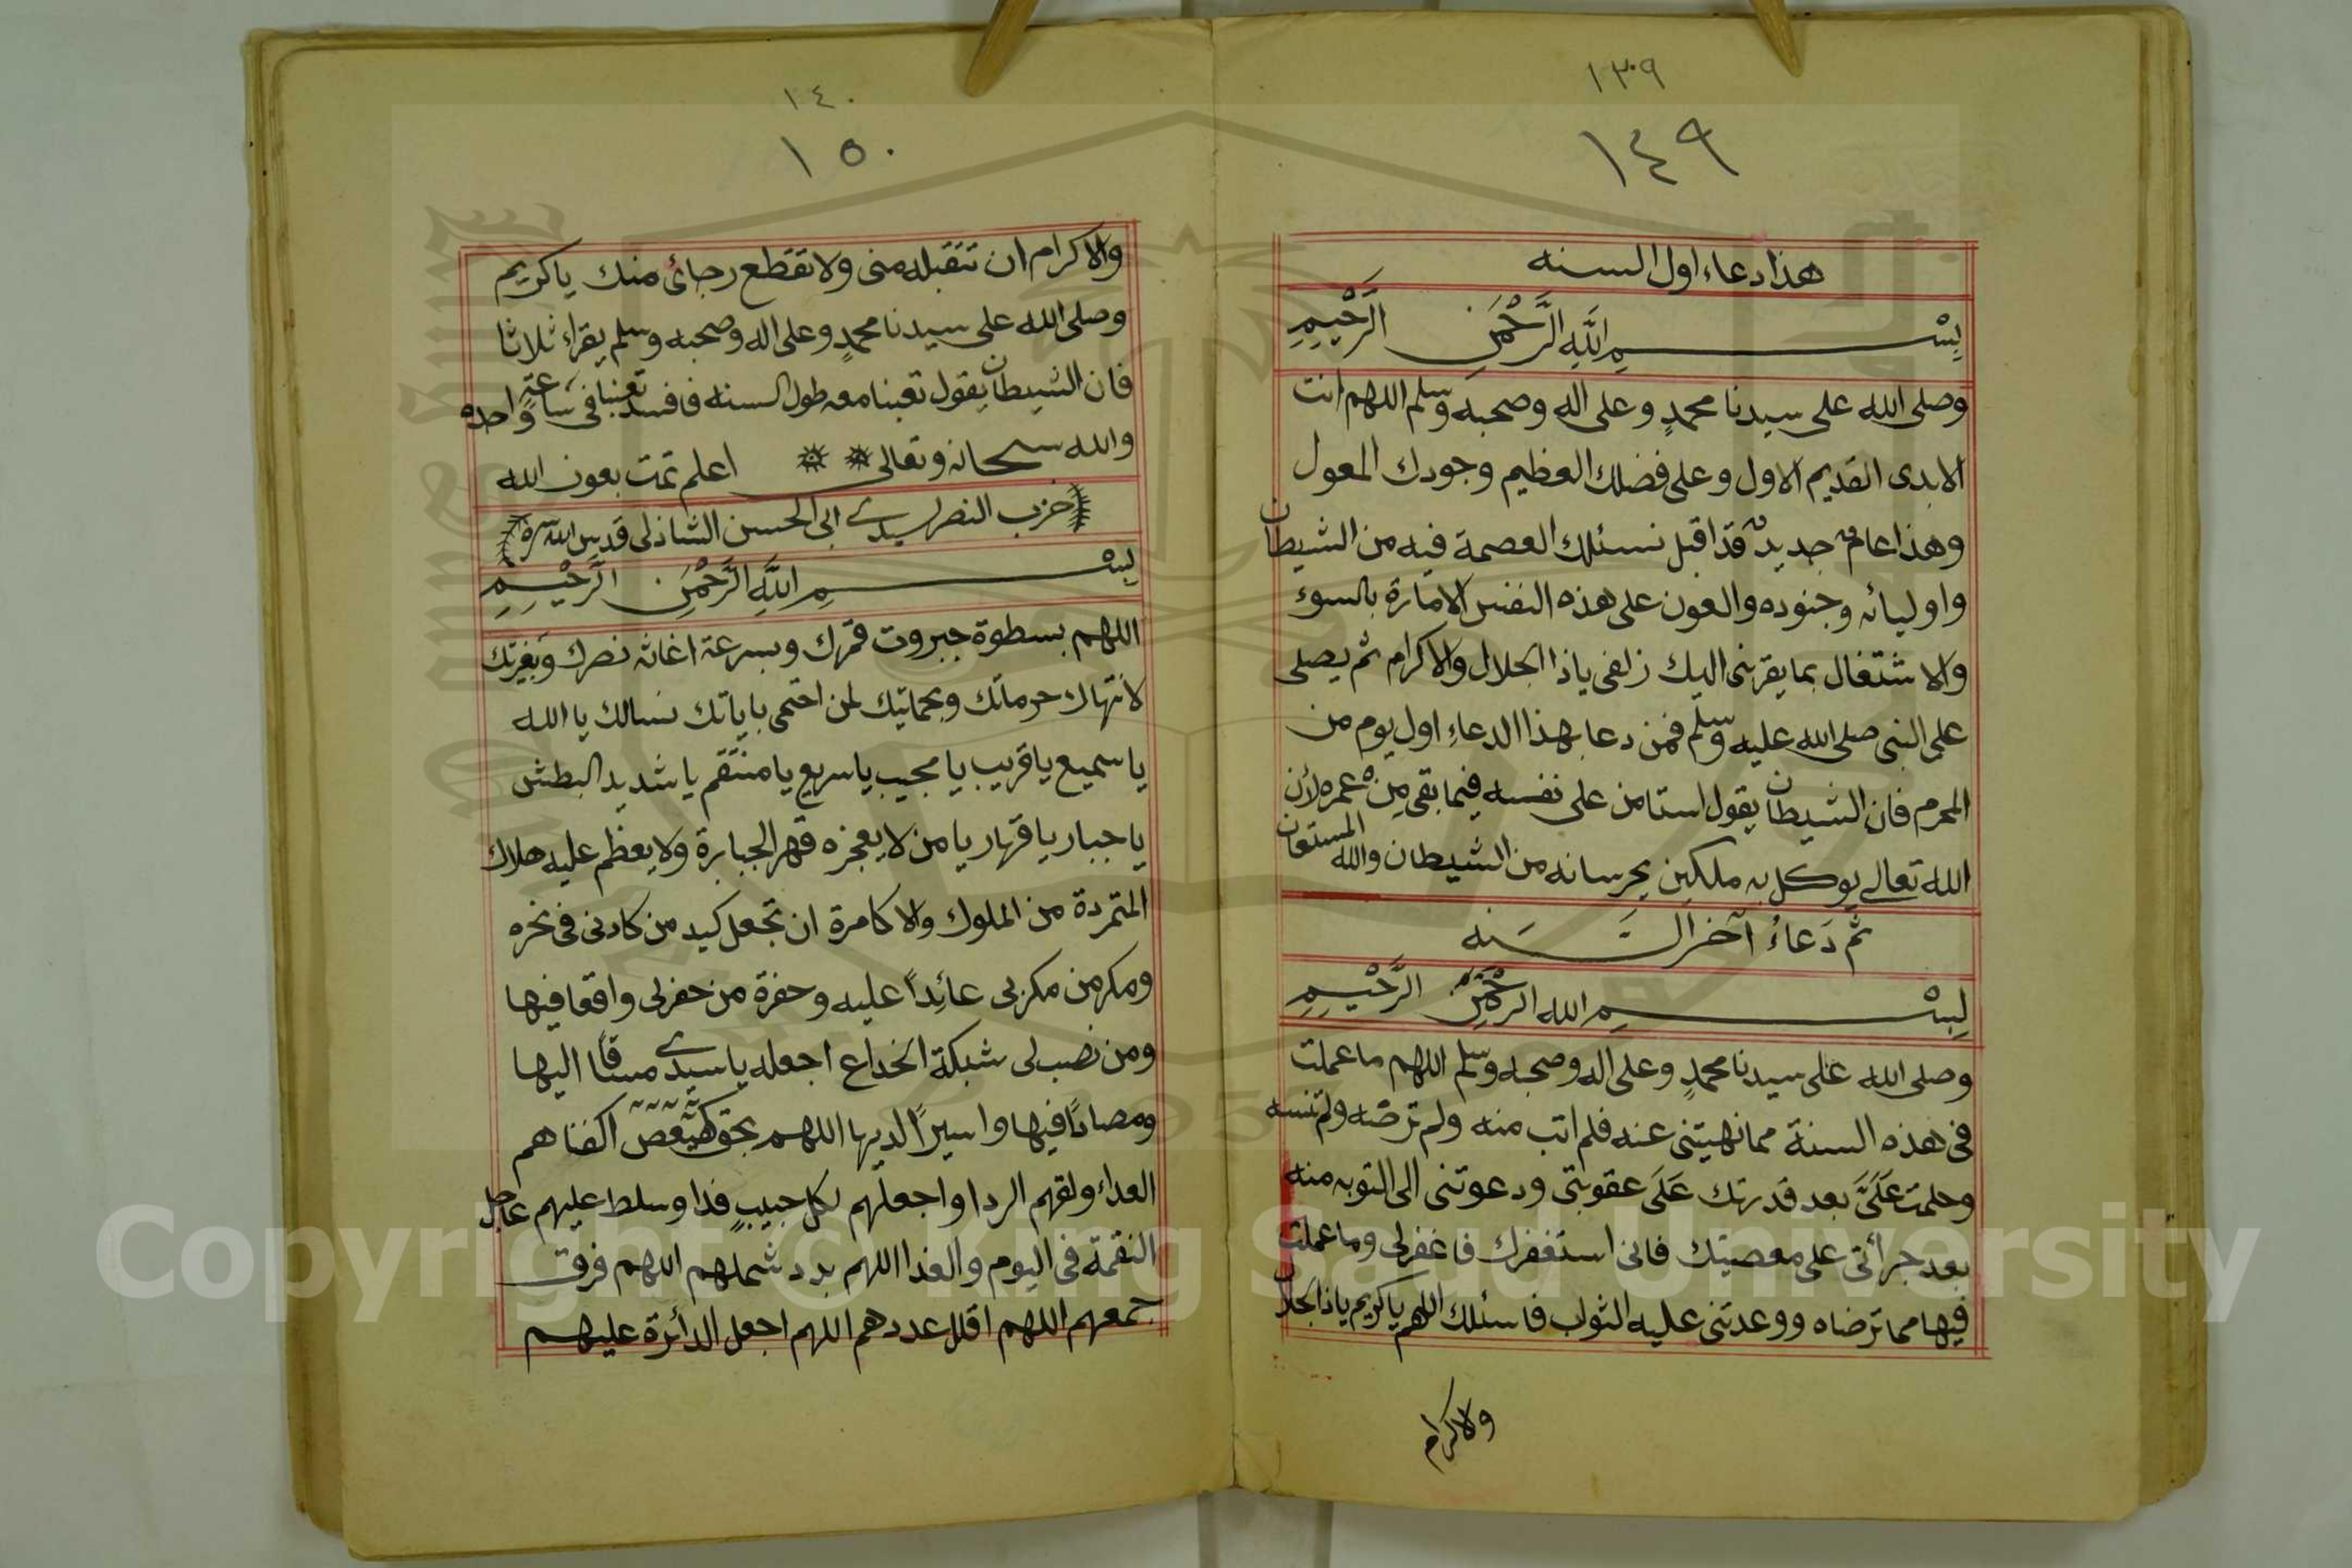 ١٣٠٩
١٤٩
هذا دعاء اول السنه
بِسْمِ اللَّهِ الرَّحْمَنِ الرَّحْيِمِ
وصلى الله على سيدنا محمدٍ وعلى اله وصحبه وسلم اللهم انت
الابدى القديم الاول وعلى فضلك العظيم وجودك المعول
وهذا عامٌ جديدٌ قد اقبل نسئلك العصمة فيه من الشيطان
واوليائه وجنوده والعون على هذه النفس الامارة بالسوء
والاشتغال بما يقربنى اليك زلفى ياذا الجلال والاكرام ثم يصلى
على النبى صلى الله عليه وسلم فمن دعا بهذا الدعاءِ اول يوم من
المحرم فان الشيطان يقول استامن على نفسه فيما بقى مِنْ عمره لأن
الله تعالى يوكل به ملكين يحرسانه من الشيطان والله المستعان
ثم دَعاءُ آخر السَّنَه
بِسْمِ الله الرحْمَنِ الرَّحْيِمِ
وصلى الله على سيدنا محمدٍ وعلى اله وصحبه وسلم اللهم ما عملت
فى هذه السنة مما نهيتنى عنه فلم اتب منه ولم ترضه ولم تنسه
وحلمت عَلَىَّ بعد قدرتك عَلَى عقوبتى ودعوتنى الى التوبه منه
بعد جرأتى على معصيتك فانى استغفرك فاغفرلى وما عملت
فيها مما ترضاه ووعدتنى عليه الثواب فاسئلك اللهم ياكريم ياذا الجلال
والاكرام
١٤٠
١٥٠
والاكرام ان تتقبله منى ولا تقطع رجائ منك ياكريم
وصلى الله على سيدنا محمدٍ وعلى اله وصحبه وسلم يقراء ثلاثا
فان الشيطان يقول تعبنا معه طول السنه فافسد تعبنا فى ساعةٍ واحده
والله سبحانه وتعالى اعلم تمت بعون الله
حزب النصر لسيدى ابى الحسن الشاذلى قدس الله سره
بِسْمِ اللَّهِ الرَّحْمَنِ الرَّحْيِمِ
اللهم بسطوة جبروت قهرك وبسرعة اغاثه نصرك وَبغيرتك
لانتهاك حرماتك وبحمايتك لمن احتمى باياتك نسالك يا الله
يا سميع يا قريب يا مجيب يا سريع يا منتقم يا شديد البطش
يا جبار يا قهار يا من لا يعجزه قهر الجبابرة ولا يعظم عليه هلاك
المتمردة من الملوك والاكامرة ان تجعل كيد من كادنى فى نحره
ومكر من مكر بى عائداً عليه وحفرة من حفر لى واقعا فيها
ومن نصب لى شبكة الخداع اجعله يا سيدى مساقا اليها
ومصادًا فيها واسيراً لديها اللهم بحق كهيعص اكفنا هم
العداء ولقهم الردا واجعلهم لكل حبيبٍ فدا وسلط عليهم عاجل
النقمة فى اليوم والغدا اللهم بدد شملهم اللهم فرق
جمعهم اللهم اقلل عددهم اللهم اجعل الدائرة عليهم
Copyright © King Saud University